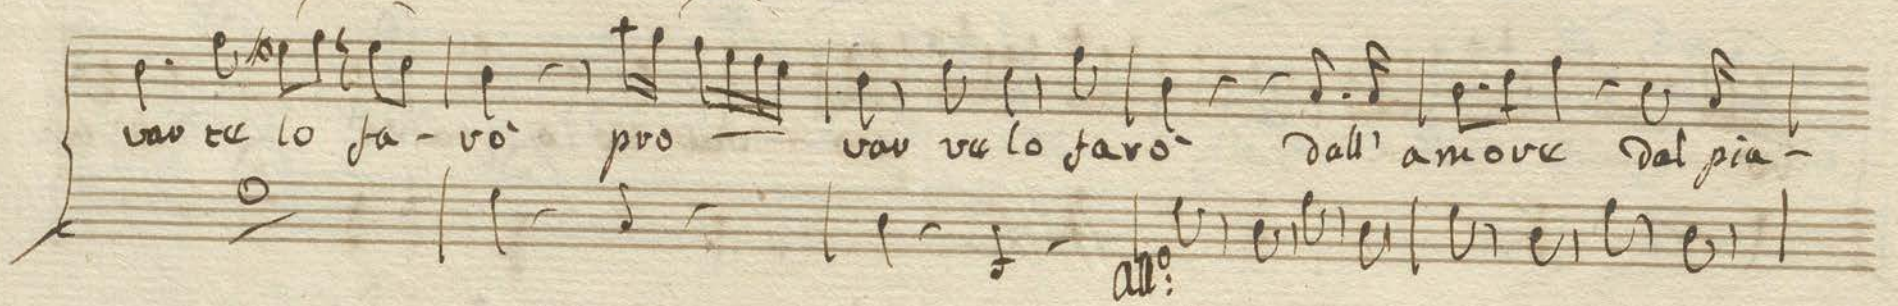 var te lo fa - rò pro - var ve lo farò dall' amore dal pia -
all.º: